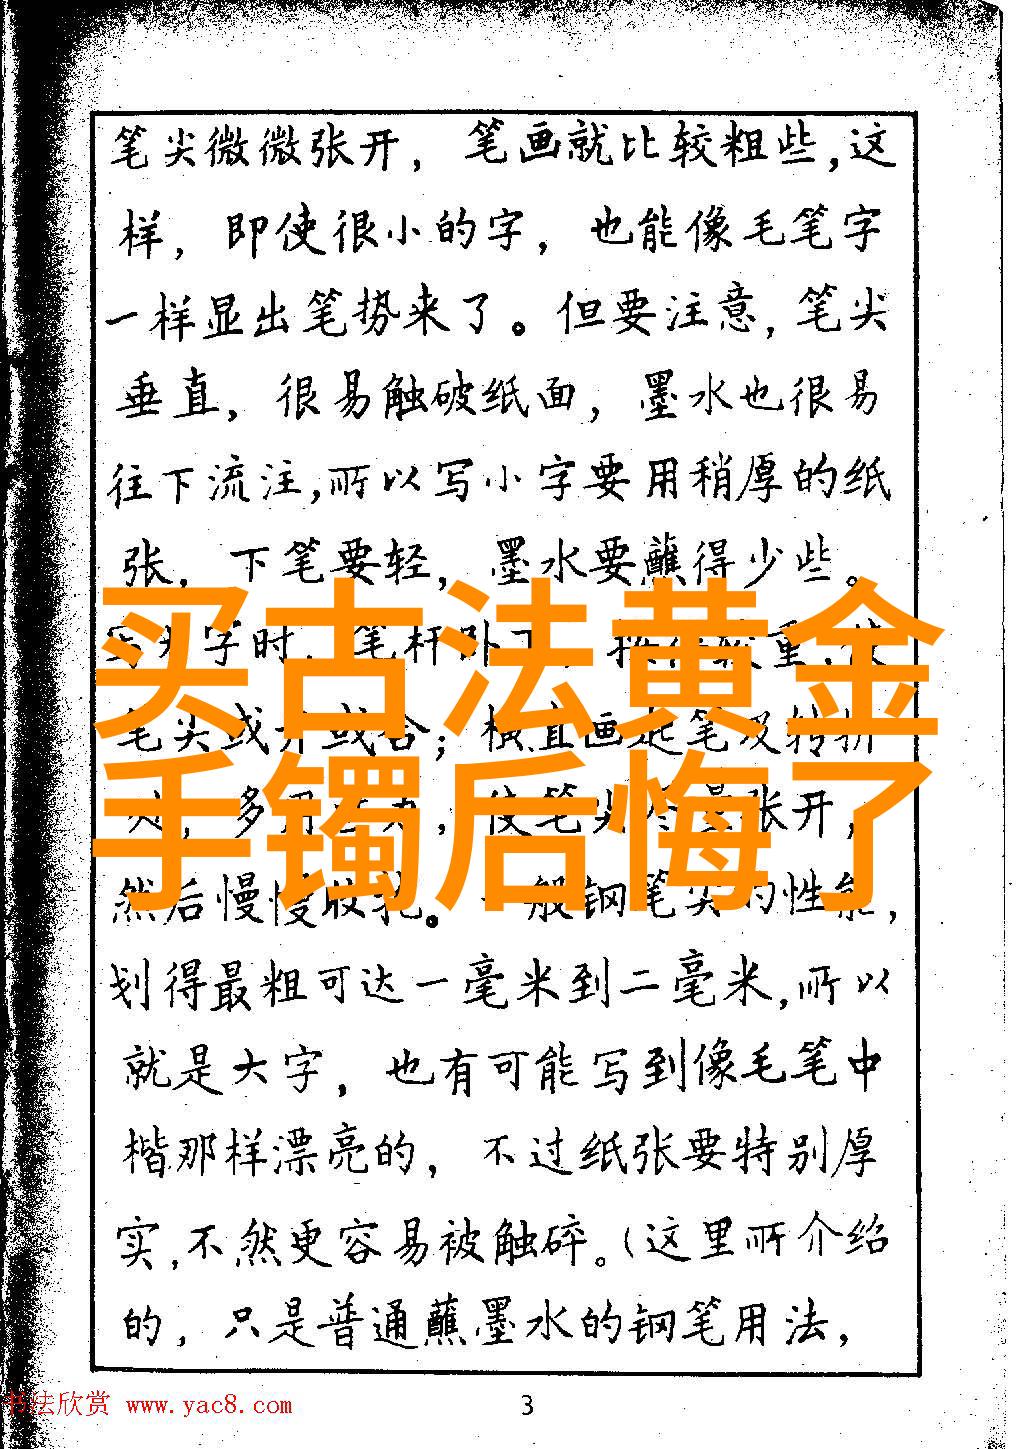 笔尖微微张开，笔画就比较粗些，这
样，即使很小的字，也能像毛笔字
一样显出笔势来了。但要注意，笔尖
垂直，很易触破纸面，墨水也很易
往下流注，所以写小字要用稍厚的纸
张，下笔要轻，墨水要蘸得少些。
字时，笔杆卧下，重，
买古法黄金
笔尖或开或合；横直画起笔及转折
手镯后悔了
处，多用，使笔尖尽量张开，
然后慢慢收拢。一般钢笔尖的性能，
划得最粗可达一毫米到二毫米，所以
就是大字，也有可能写到像毛笔中
楷那样漂亮的，不过纸张要特别厚
实，不然更容易被触碎。（这里所介绍
的，只是普通蘸墨水的钢笔用法，
书法欣赏 www.yac8.com
3